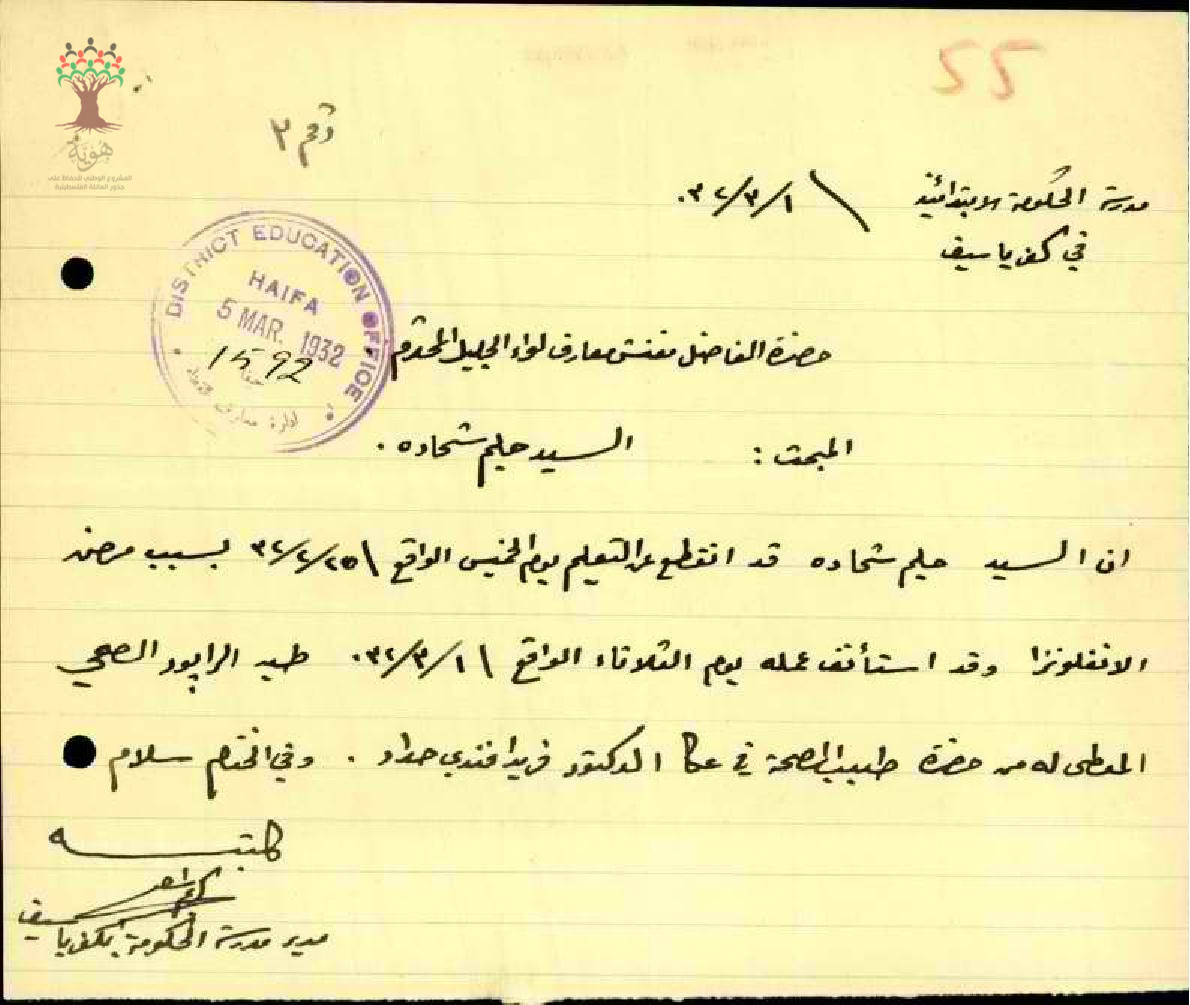 55
هوية
المشروع الوطني للحفاظ على
جذور العائلة الفلسطينية
رقم ٢
مدرسة الحكومة الابتدائية \ ٣٢/٣/١.
في كفر ياسيف
DISTRICT EDUCATION OFFICE
HAIFA
5 MAR. 1932
1592
حيفا
ادارة معارف
حضرة الفاضل مفتش معارف لواء الجليل المحترم
المبحث : السيد حليم شحاده .
ان السيد حليم شحاده قد انقطع عن التعليم يوم الخميس الواقع \ ٣٢/٢/٢٥ بسبب مرض
الانفلونزا وقد استأنف عمله يوم الثلاثاء الواقع \ ٣٢/٣/١. طيه الرابور الصحي
المعطى له من حضرة طبيب الصحة في عكا الدكتور فريد افندي حداد . وفي الختام سلام
كاتبه
مدير مدرسة الحكومة بكفر ياسيف